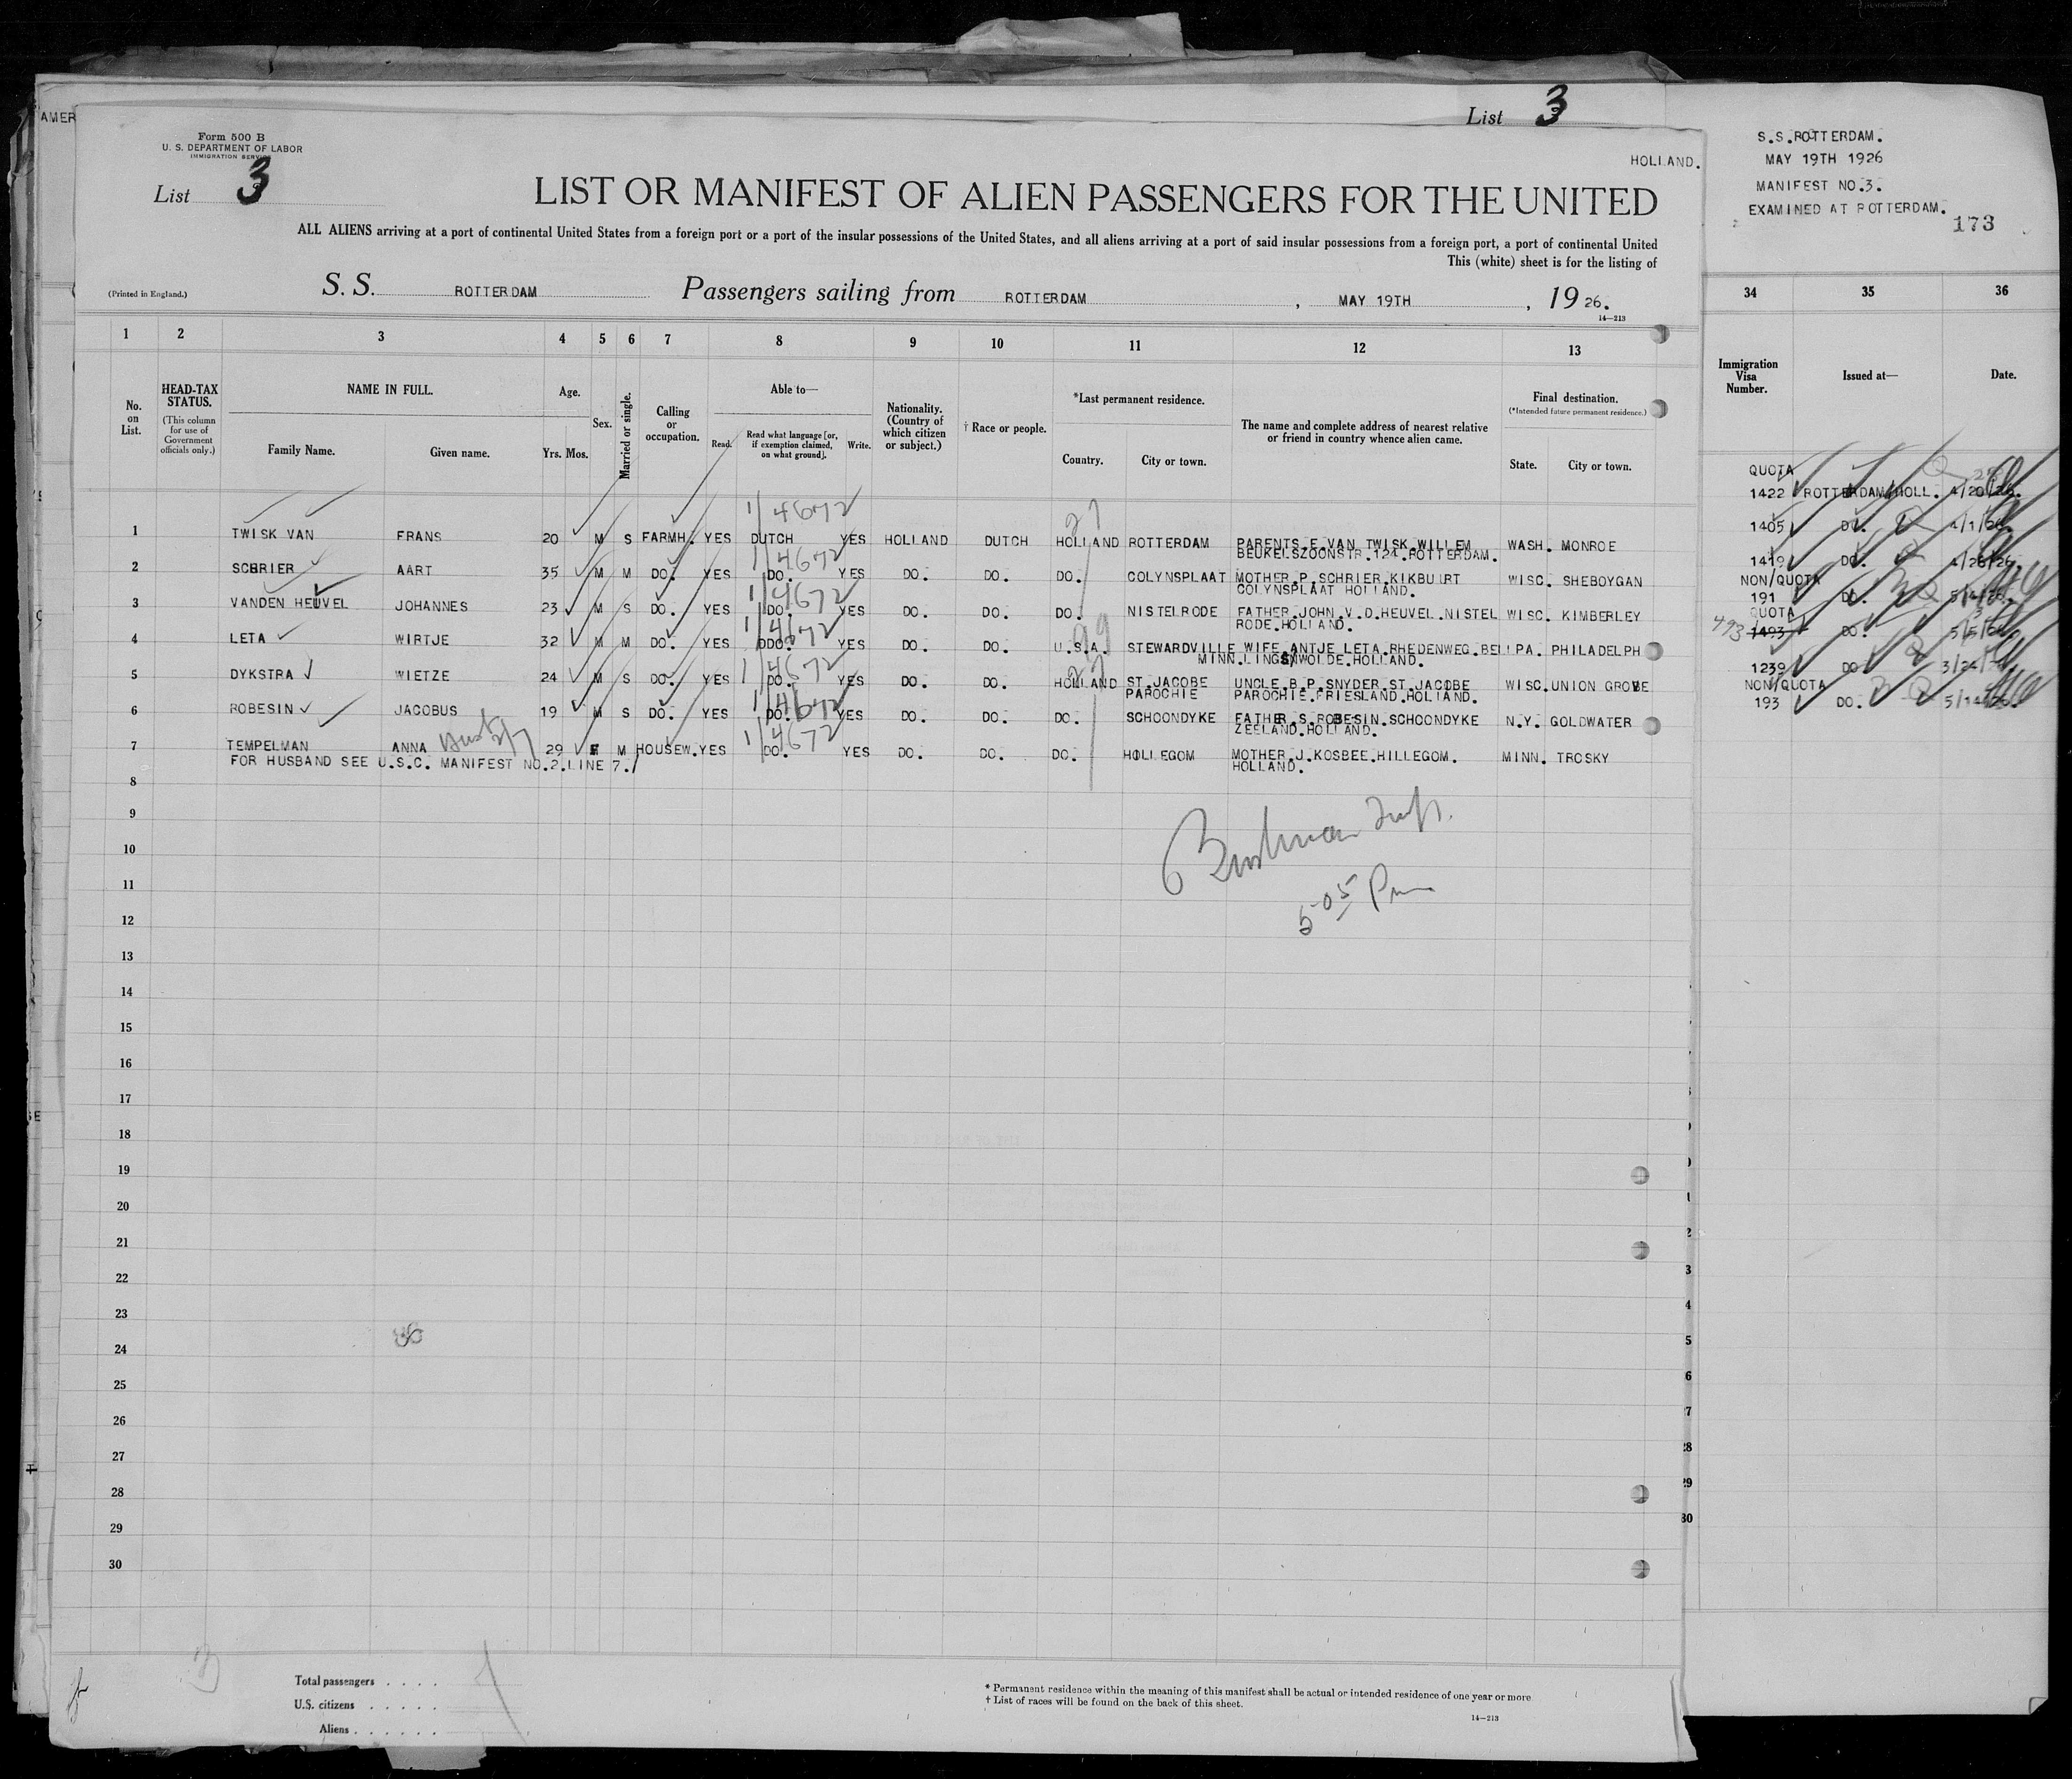 AMER
List 3
Form 500 B
U. S. DEPARTMENT OF LABOR
IMMIGRATION SERVICE
List 3
HOLLAND.
LIST OR MANIFEST OF ALIEN PASSENGERS FOR THE UNITED
ALL ALIENS arriving at a port of continental United States from a foreign port or a port of the insular possessions of the United States, and all aliens arriving at a port of said insular possessions from a foreign port, a port of continental United
This (white) sheet is for the listing of
(Printed in England.)
S. S. ROTTERDAM Passengers sailing from ROTTERDAM , MAY 19TH , 19 26.
14—213
S.S.ROTTERDAM.
MAY 19TH 1926
MANIFEST NO.3.
EXAMINED AT ROTTERDAM.
173
1 2 3 4 5 6 7 8 9 10 11 12 13 34 35 36
No. on List.
HEAD-TAX STATUS.
(This column for use of Government officials only.)
NAME IN FULL.
Family Name. Given name.
Age.
Yrs. Mos.
Sex.
Married or single.
Calling or occupation.
Able to—
Read. Read what language [or, if exemption claimed, on what ground]. Write.
Nationality. (Country of which citizen or subject.)
† Race or people.
*Last permanent residence.
Country. City or town.
The name and complete address of nearest relative or friend in country whence alien came.
Final destination.
(*Intended future permanent residence.)
State. City or town.
Immigration Visa Number.
Issued at—
Date.
1 TWISK VAN FRANS 20 M S FARMH. YES DUTCH YES HOLLAND DUTCH HOLLAND ROTTERDAM PARENTS.F.VAN TWISK.WILLEM WASH. MONROE
BEUKELSZOONSTR.124.ROTTERDAM.
2 SCHRIER AART 35 M M DO. YES DO. YES DO. DO. DO. COLYNSPLAAT MOTHER.P.SCHRIER.KIKBUURT WISC. SHEBOYGAN
COLYNSPLAAT HOLLAND.
3 VANDEN HEUVEL JOHANNES 23 M S DO. YES DO. YES DO. DO. DO. NISTELRODE FATHER.JOHN.V.D.HEUVEL.NISTEL WISC. KIMBERLEY
RODE.HOLLAND.
4 LETA WIRTJE 32 M M DO. YES DO. YES DO. DO. U.S.A. STEWARDVILLE WIFE.ANTJE LETA.RHEDENWEG.BELL PA. PHILADELPH
MINN.LINGSNWOLDE.HOLLAND.
5 DYKSTRA WIETZE 24 M S DO. YES DO. YES DO. DO. HOLLAND ST.JACOBE UNCLE.B.P.SNYDER.ST.JACOBE WISC.UNION GROVE
PAROCHIE PAROCHIE.FRIESLAND.HOLLAND.
6 ROBESIN JACOBUS 19 M S DO. YES DO. YES DO. DO. DO. SCHOONDYKE FATHER.S.ROBESIN.SCHOONDYKE N.Y. GOLDWATER
ZEELAND.HOLLAND.
7 TEMPELMAN ANNA 29 F M HOUSEW.YES DO. YES DO. DO. DO. HOLLEGOM MOTHER.J.KOSBEE.HILLEGOM. MINN. TROSKY
FOR HUSBAND SEE U.S.C. MANIFEST NO.2.LINE 7. HOLLAND.
1/4672
1/4672
1/4672
1/4672
1/4672
1/4672
1/4672
27
99
27
QUOTA
1422 ROTTERDAM/HOLL. 4/20/26.
1405 DO. 4/1/26.
1419 DO. 4/26/26.
NON/QUOTA
191 DO. 5/14/26.
QUOTA
493 1493 DO. 5/5/26
1239 DO 3/24/26
NON/QUOTA
193 DO. 5/14/26.
8
9
10
11
12
13
14
15
16
17
18
19
20
21
22
23
24
25
26
27
28
29
30
5 05 Pm
Total passengers . . . .
U.S. citizens . . . . .
Aliens . . . . . .
* Permanent residence within the meaning of this manifest shall be actual or intended residence of one year or more
† List of races will be found on the back of this sheet.
14—213